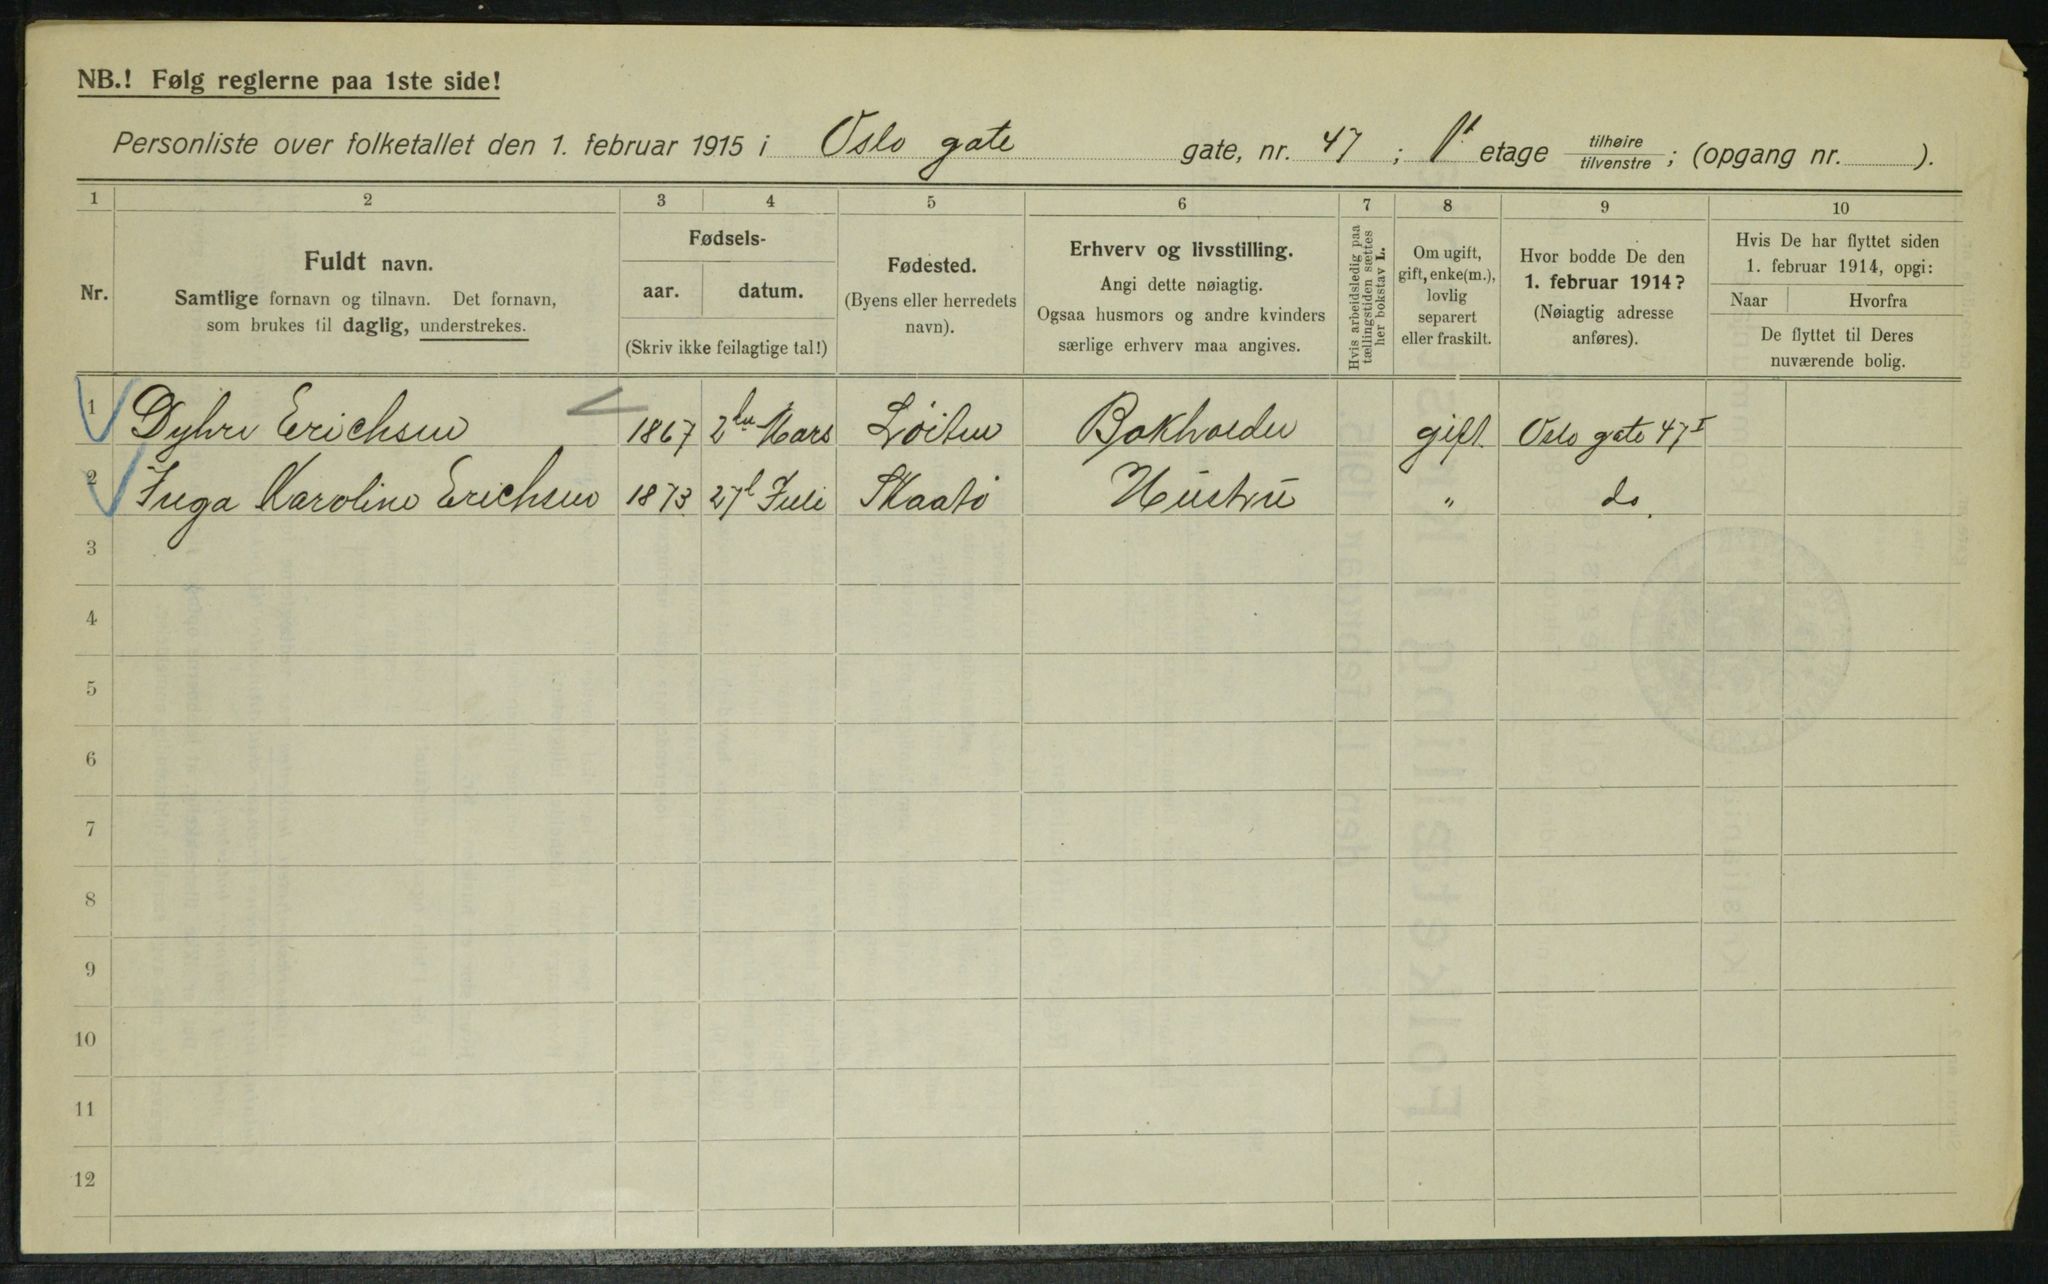 NB.! Følg reglerne paa 1ste side!
Personliste over folketallet den 1. februar 1915 i Oslo gate gate, nr. 47 ; 1st etage tilhøire / tilvenstre ; (opgang nr. ).
1 2 3 4 5 6 7 8 9 10
Nr.
Fuldt navn.
Samtlige fornavn og tilnavn. Det fornavn,
som brukes til daglig, understrekes.
Fødsels-
aar. datum.
(Skriv ikke feilagtige tal!)
Fødested.
(Byens eller herredets
navn).
Erhverv og livsstilling.
Angi dette nøiagtig.
Ogsaa husmors og andre kvinders
særlige erhverv maa angives.
Hvis arbeidsledig paa
tællingstiden sættes
her bokstav L.
Om ugift,
gift, enke(m.),
lovlig
separert
eller fraskilt.
Hvor bodde De den
1. februar 1914?
(Nøiagtig adresse
anføres).
Hvis De har flyttet siden
1. februar 1914, opgi:
Naar Hvorfra
De flyttet til Deres
nuværende bolig.
1 Dyhre Erichsen 1867 2den Mars Løiten Bokholder gift Oslo gate 47 I
2 Inga Karoline Erichsen 1873 27 Juli Skaatø Hustru " do.
3
4
5
6
7
8
9
10
11
12